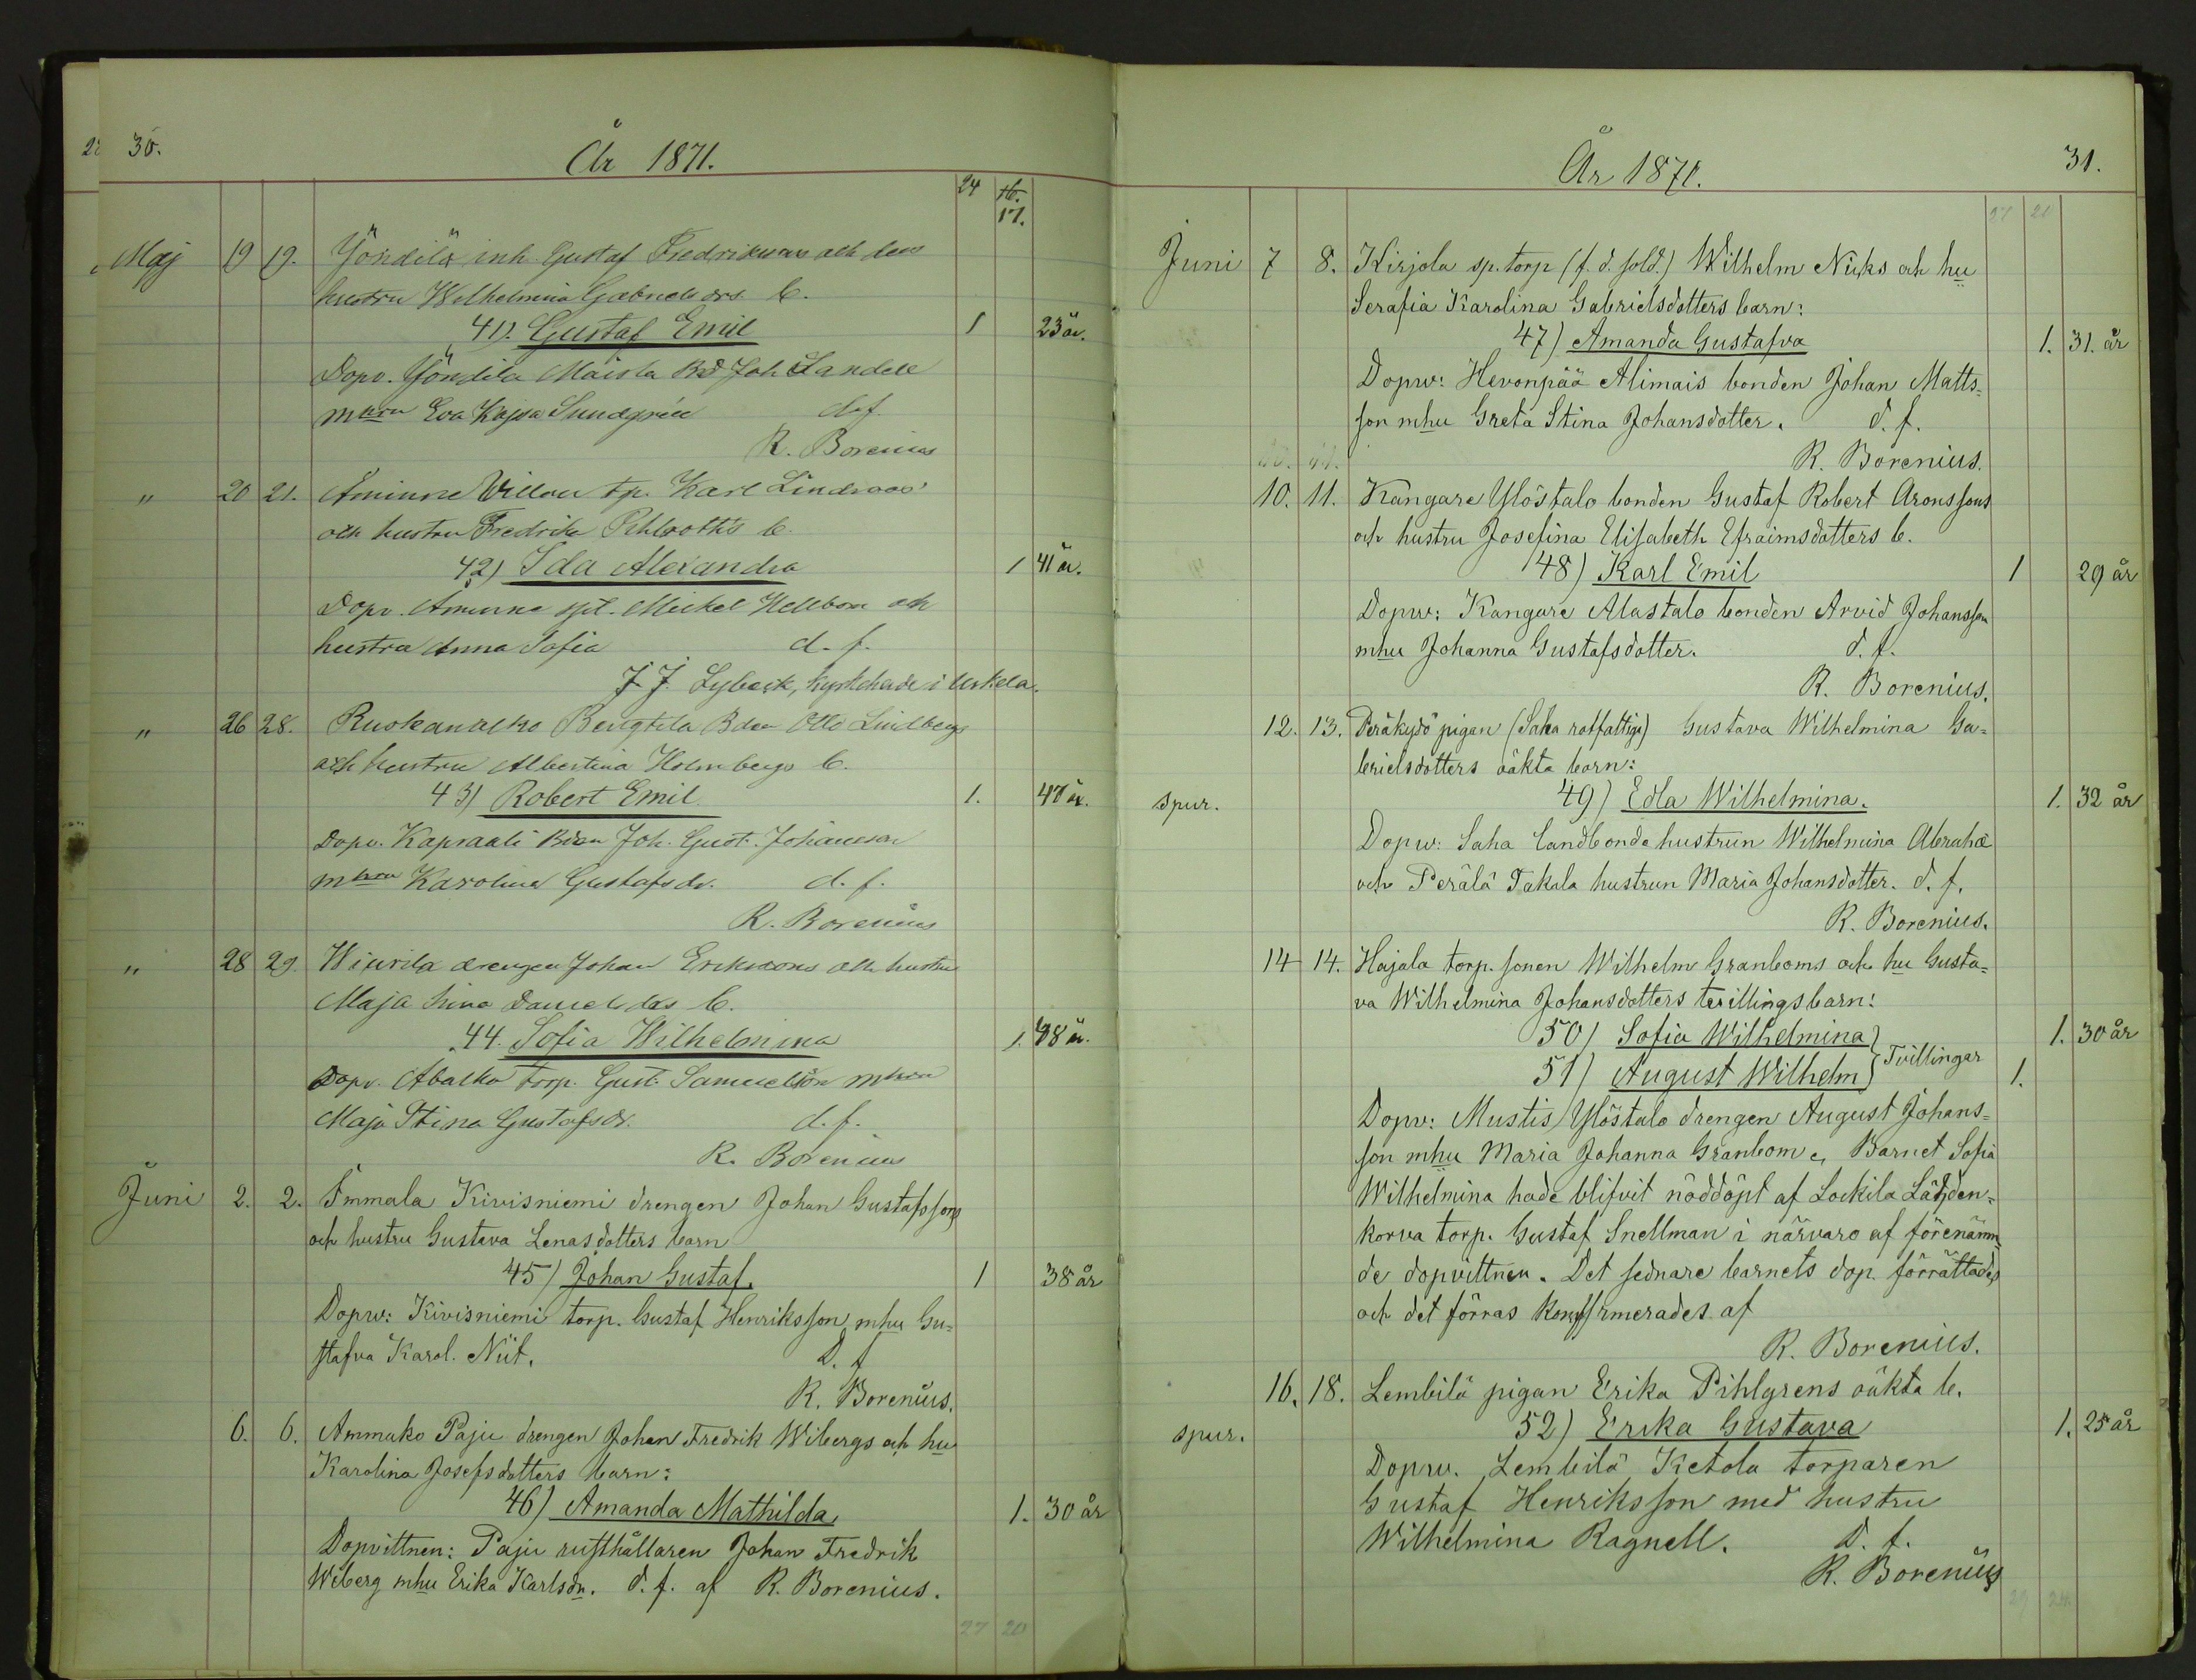 30.
År 1871.
24 Tr. 17.
Maj 19 19. Jöndilä inh. Gustaf Fredriksons och dess
hustru Wilhelmina Gabrielsdrs b.
41). Gustaf Emil 1 23 år.
Dopv. Jöndila Maisla Bd Joh Sandell
mhru Eva Kajsa Sundgrén d. f.
R. Borenius
" 20 21. Åminne Villou tp. Karl Lindroos'
och hustru Fredrika Pihlroth's b.
42) Ida Alexandra 1 41 år.
Dopv. Åminne spt. Mickel Hellbom och
hustru Anna Sofia d. f.
J. J. Lybeck, kyrkoherde i Uskela.
" 26 28. Ruskanalko Bengtila Bden Otto Lindbergs
och hustru Albertina Holmbergs b.
43) Robert Emil 1. 47 år.
Dopv. Kapraali Bden Joh. Gust. Johansson
mhru Karolina Gustafsdr. d. f.
R. Borenius
" 28 29. Wiurila drengen Johan Erikssons och hustru
Maja Stina Danielsdrs b.
44. Sofia Wilhelmina 1. 38 år.
Dopv. Abalko torp. Gust. Samuelsson mhru
Maja Stina Gustafsdr. d. f.
R. Borenius
Juni 2. 2. Immala Kivisniemi drengen Johan Gustafssons
och hustru Gustava Lenasdotters barn
45) Johan Gustaf. 1 38 år
Dopw: Kivisniemi torp. Gustaf Henriksson mhu Gu=
stafva Karol. Nüt. D. f
R. Borenius.
6. 6. Ammako Paju drengen Johan Fredrik Wibergs och hu
Karolina Josefsdotters barn:
46) Amanda Mathilda 1. 30 år
Dopvittnen: Paju rusthållaren Johan Fredrik
Wiberg mhu Erika Karlsdr. d. f. af R. Borenius.
27 20
31.
År 1871.
27 20
Juni 7 8. Kirjola sp. torp (f. d. sold.) Wilhelm Nuks och hu
Serafia Karolina Gabrielsdotters barn:
47) Amanda Gustafva 1. 31. år
Dopw: Hevonpää Alimais bonden Johan Matts=
son mhu Greta Stina Johansdotter. d. f.
R. Borenius.
10. 11. Kangare Ylöstalo bonden Gustaf Robert Aronssons
och hustru Josefina Elisabeth Efraimsdotters b.
48) Karl Emil 1 29 år
Dopw: Kangare Alastalo bonden Arvid Johansson
mhu Johanna Gustafsdotter. d. f.
R. Borenius.
12. 13. Peräkylö pigan (Saha rotfattige) Gustava Wilhelmina Ga=
brielsdotters oäkta barn:
spur. 49) Edla Wilhelmina. 1. 32 år
Dopw: Saha landbonde hustrun Wilhelmina Abraha
och Perälä Takala hustrun Maria Johansdotter. d. f.
R. Borenius.
14 14. Hajala torp. sonen Wilhelm Granboms och hu Gusta=
va Wilhelmina Johansdotters tvillingsbarn:
50) Sofia Wilhelmina 1. 30 år
Tvillingar
51) August Wilhelm 1.
Dopw: Mustis Ylöstalo drengen August Johans=
son mhu Maria Johanna Granbom. Barnet Sofia
Wilhelmina hade blifvit nöddöpt af Lockila Lähden=
korva torp. Gustaf Snellman i närvaro af förenämn
de dopvittnen. Det sednare barnets dop förrättades
och det förras konffirmerades af
R. Borenius.
16. 18. Lembilä pigan Erika Pihlgrens oäkta b.
spur. 52) Erika Gustava 1. 25 år
Dopw. Lembilä Ketola torparen
Gustaf Henriksson med hustru
Wilhelmina Ragnell. D. f.
R. Borenius
29 24